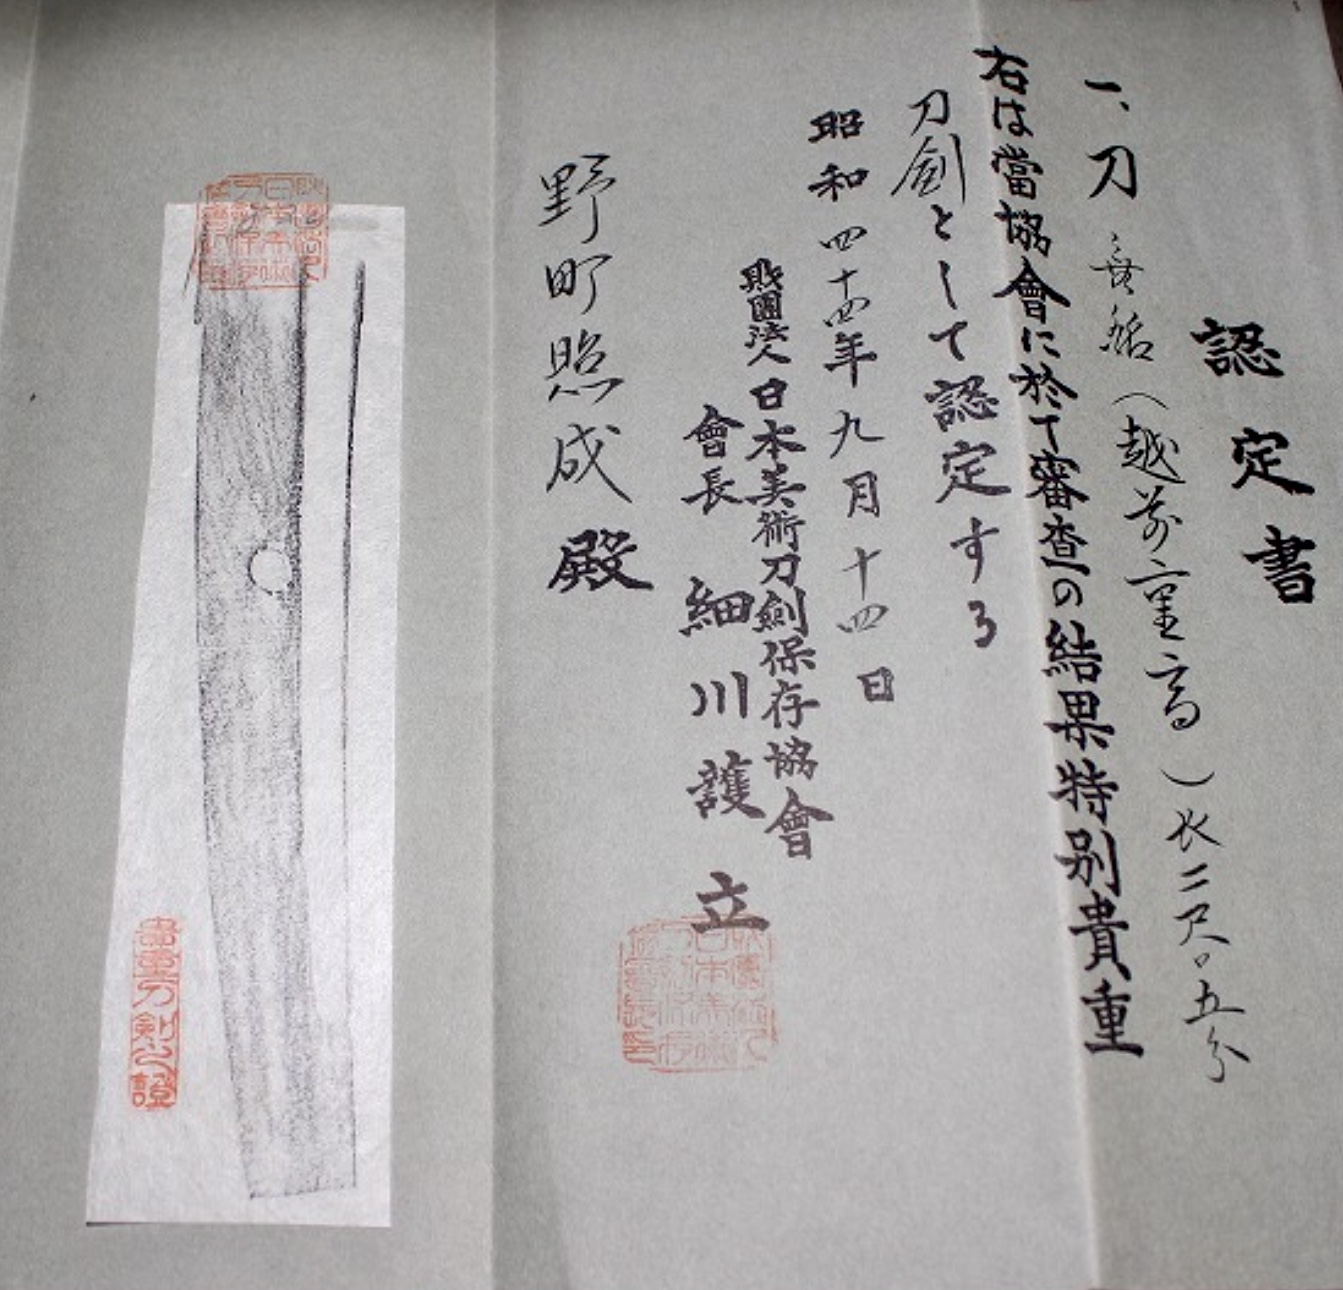 認定書
一、刀 無銘(越前重高)長二尺〇五分
右は當協會に於て審査の結果特別貴重
刀劍として認定する
昭和四十四年九月十四日
財團法人日本美術刀劍保存協會
會長 細川護立
野町照成殿
貴重刀剣之證